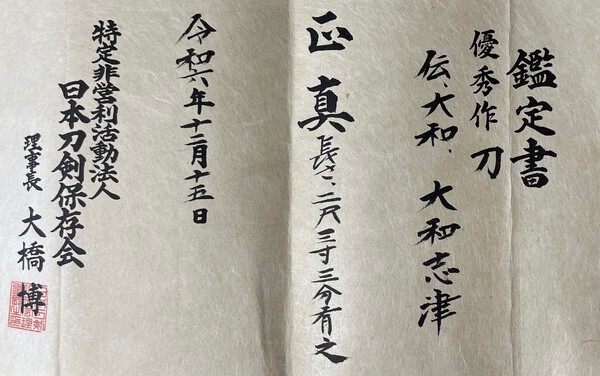 鑑定書
優秀作 刀
伝、大和、大和志津
正真 長さ、二尺三寸三分有之
令和六年十二月十五日
特定非営利活動法人
日本刀剣保存会
理事長 大橋博